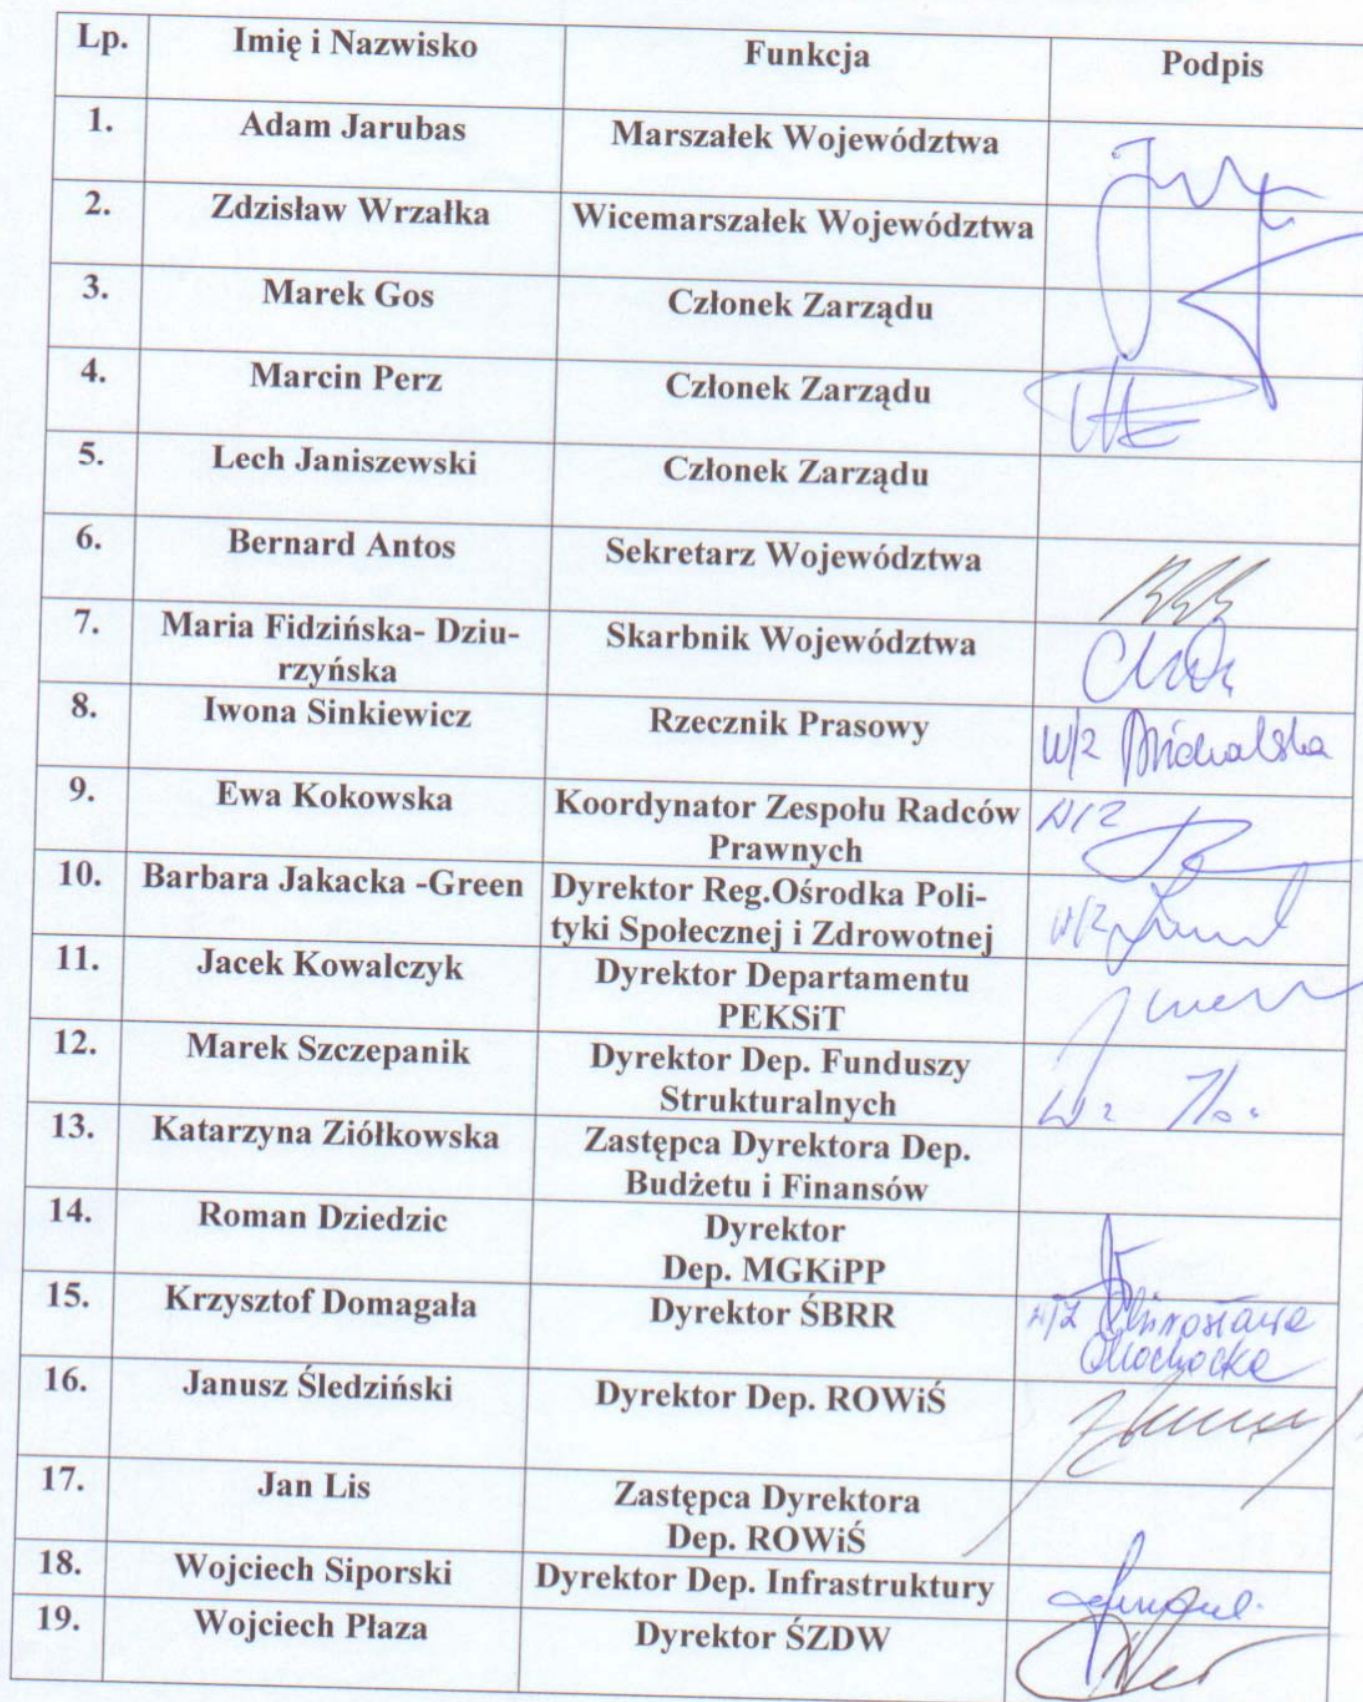 Lp. Imię i Nazwisko Funkcja Podpis
1. Adam Jarubas Marszałek Województwa
2. Zdzisław Wrzałka Wicemarszałek Województwa
3. Marek Gos Członek Zarządu
4. Marcin Perz Członek Zarządu
5. Lech Janiszewski Członek Zarządu
6. Bernard Antos Sekretarz Województwa
7. Maria Fidzińska- Dziu- Skarbnik Województwa
rzyńska
8. Iwona Sinkiewicz Rzecznik Prasowy w/z Michalska
9. Ewa Kokowska Koordynator Zespołu Radców w/z
Prawnych
10. Barbara Jakacka -Green Dyrektor Reg.Ośrodka Poli-
tyki Społecznej i Zdrowotnej w/z
11. Jacek Kowalczyk Dyrektor Departamentu
PEKSiT
12. Marek Szczepanik Dyrektor Dep. Funduszy
Strukturalnych
13. Katarzyna Ziółkowska Zastępca Dyrektora Dep.
Budżetu i Finansów
14. Roman Dziedzic Dyrektor
Dep. MGKiPP
15. Krzysztof Domagała Dyrektor ŚBRR w/z
16. Janusz Śledziński Dyrektor Dep. ROWiŚ
17. Jan Lis Zastępca Dyrektora
Dep. ROWiŚ
18. Wojciech Siporski Dyrektor Dep. Infrastruktury
19. Wojciech Płaza Dyrektor ŚZDW